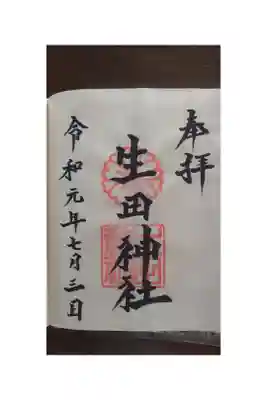 奉拝
生田神社
令和元年七月三日